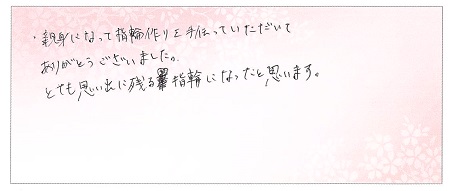 ・親身になって指輪作りを手伝っていただいて
ありがとうございました。
とても思い出に残る指輪になったと思います。